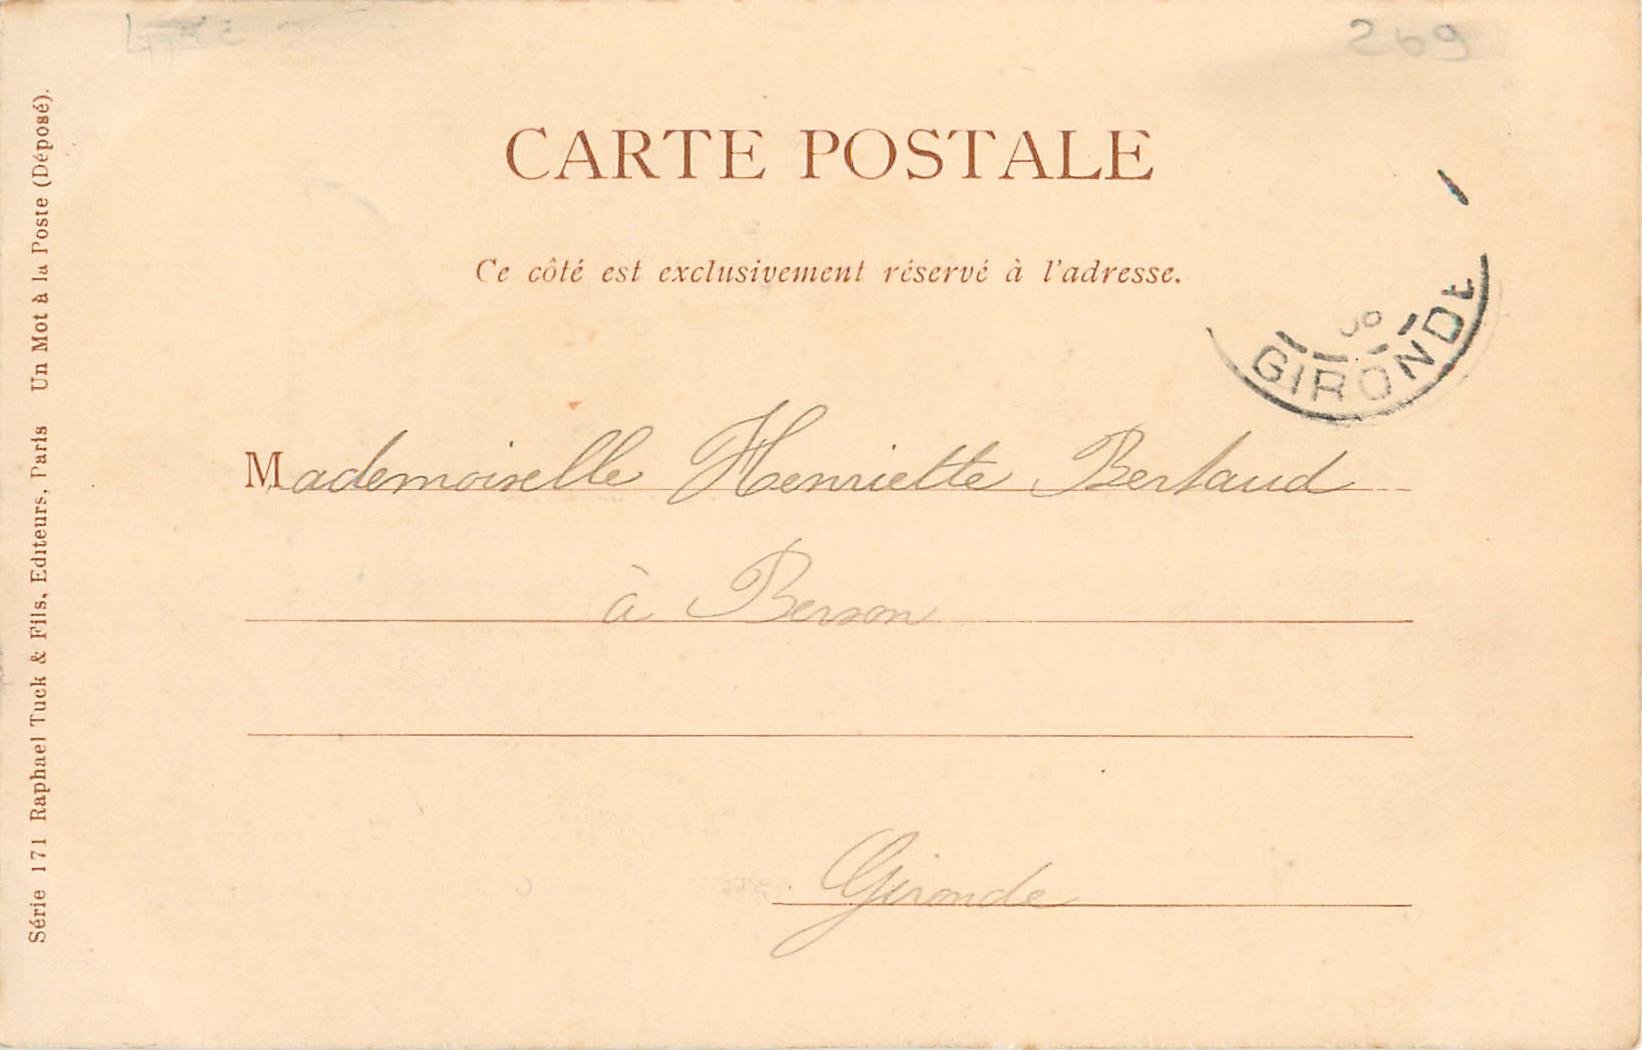 269
CARTE POSTALE
Ce côté est exclusivement réservé à l'adresse.
GIRONDE
Mademoiselle Henriette Bertaud
à Berson
Gironde
Série 171 Raphael Tuck & Fils, Editeurs, Paris Un Mot à la Poste (Déposé).